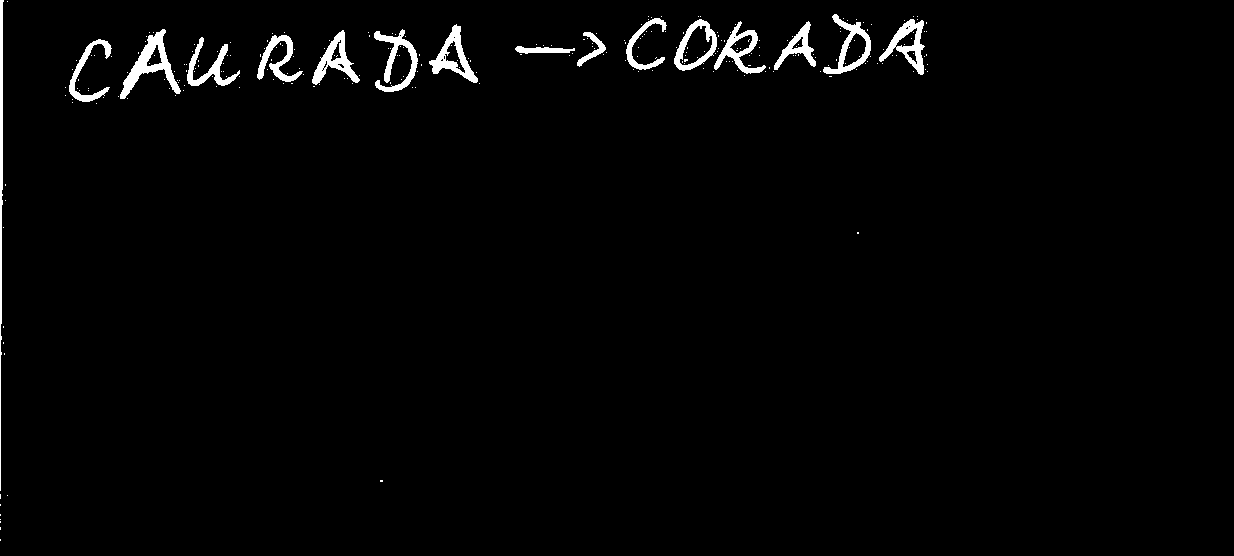 CAURADA -> CORADA